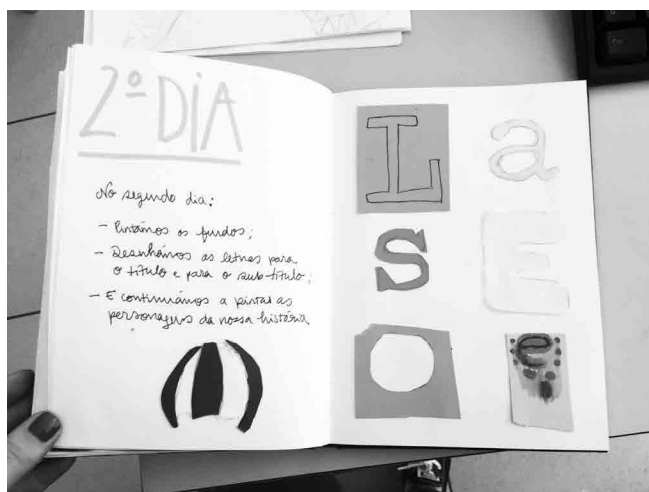 2º DIA
No segundo dia:
- Pintámos os fundos;
- Desenhámos as letras para
o título e para o sub-título;
- E continuámos a pintar as
personagens da nossa história
L a
S E
e